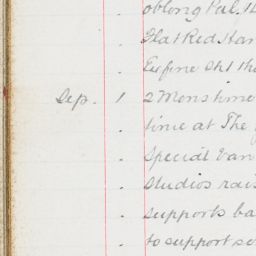 oblong Pal.
Flat Red Han
Eufine Sht the
Sep. 1 2 Mens time
. time at The
. Special Van
. Studios rais
. supports ba
. to support so